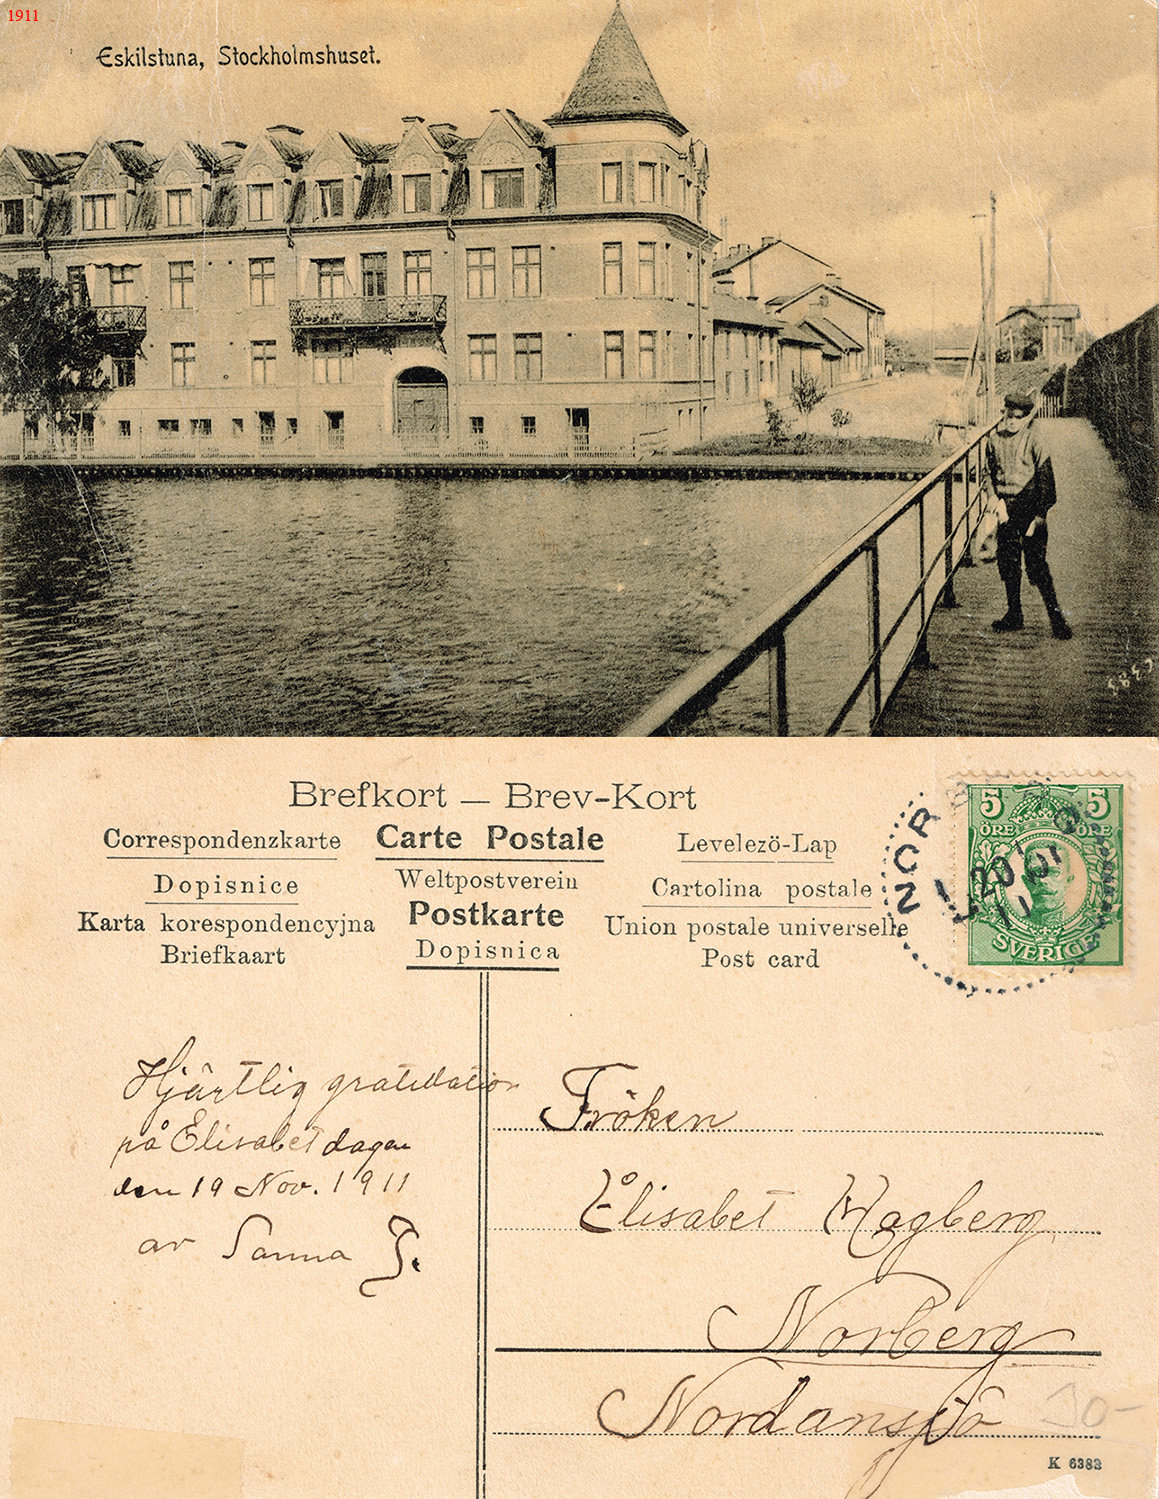 1911
Eskilstuna, Stockholmshuset.
6383
Brefkort — Brev-Kort
Correspondenzkarte
Carte Postale
Levelezö-Lap
Dopisnice
Weltpostverein
Cartolina postale
Karta korespondencyjna
Postkarte
Union postale universelle
Briefkaart
Dopisnica
Post card
5 5
ÖRE ÖRE
SVERIGE
NORBERG
20
11
Hjärtlig gratulation
på Elisabetdagen
den 19 Nov. 1911
av Sanna J.
Fröken
Elisabet Hagberg
Norberg
Nordansjö
30-
K 6383